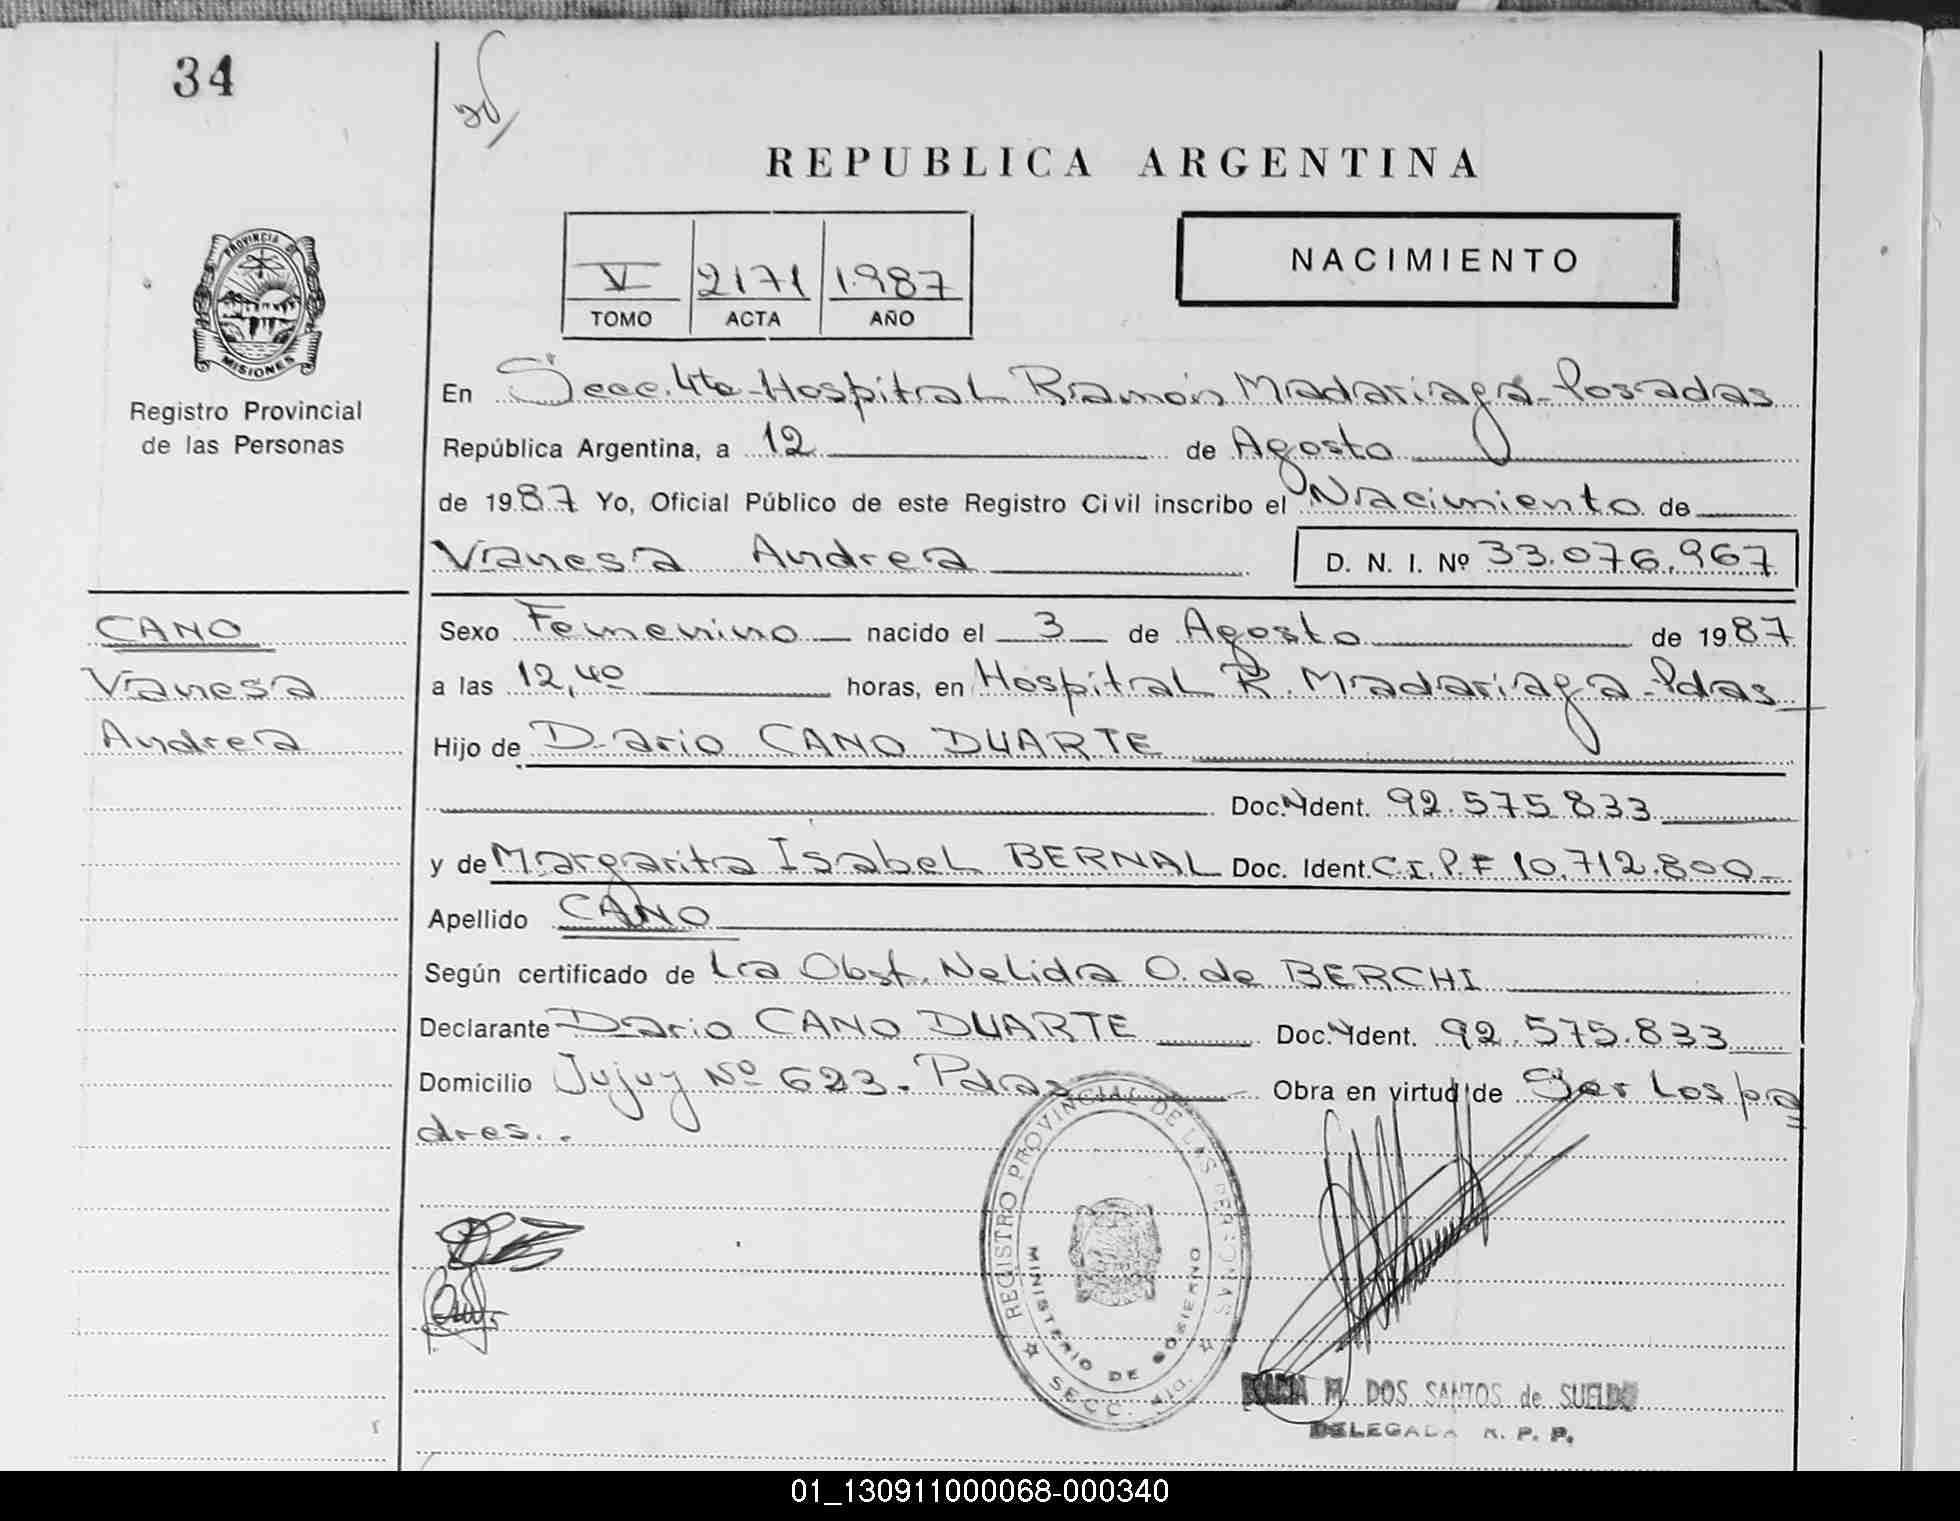 34
REPUBLICA ARGENTINA
V 2171 1.987
TOMO ACTA AÑO
NACIMIENTO
PROVINCIA DE
MISIONES
Registro Provincial
de las Personas
En Secc. 4ta-Hospital Ramón Madariaga-Posadas
República Argentina, a 12 de Agosto
de 1987 Yo, Oficial Público de este Registro Civil inscribo el Nacimiento de
Vanesa Andrea D. N. I. Nº 33.076.967
CANO
Vanesa
Andrea
Sexo Femenino nacido el 3 de Agosto de 1987
a las 12,40 horas, en Hospital R. Madariaga-Pdas
Hijo de Dario CANO DUARTE
Doc. Ident. 92.575.833
y de Margarita Isabel BERNAL Doc. Ident. C.I.P.F 10.712.800
Apellido CANO
Según certificado de La Obst. Nelida O. de BERCHI
Declarante Dario CANO DUARTE Doc. Ident. 92.575.833
Domicilio Jujuy Nº 623. Pdas Obra en virtud de Ser Los pa
dres..
REGISTRO PROVINCIAL DE LAS PERSONAS
MINISTERIO DE GOBIERNO
SECC. 4TA.
M. DOS SANTOS de SUELDO
DELEGADA R. P. P.
01_130911000068-000340